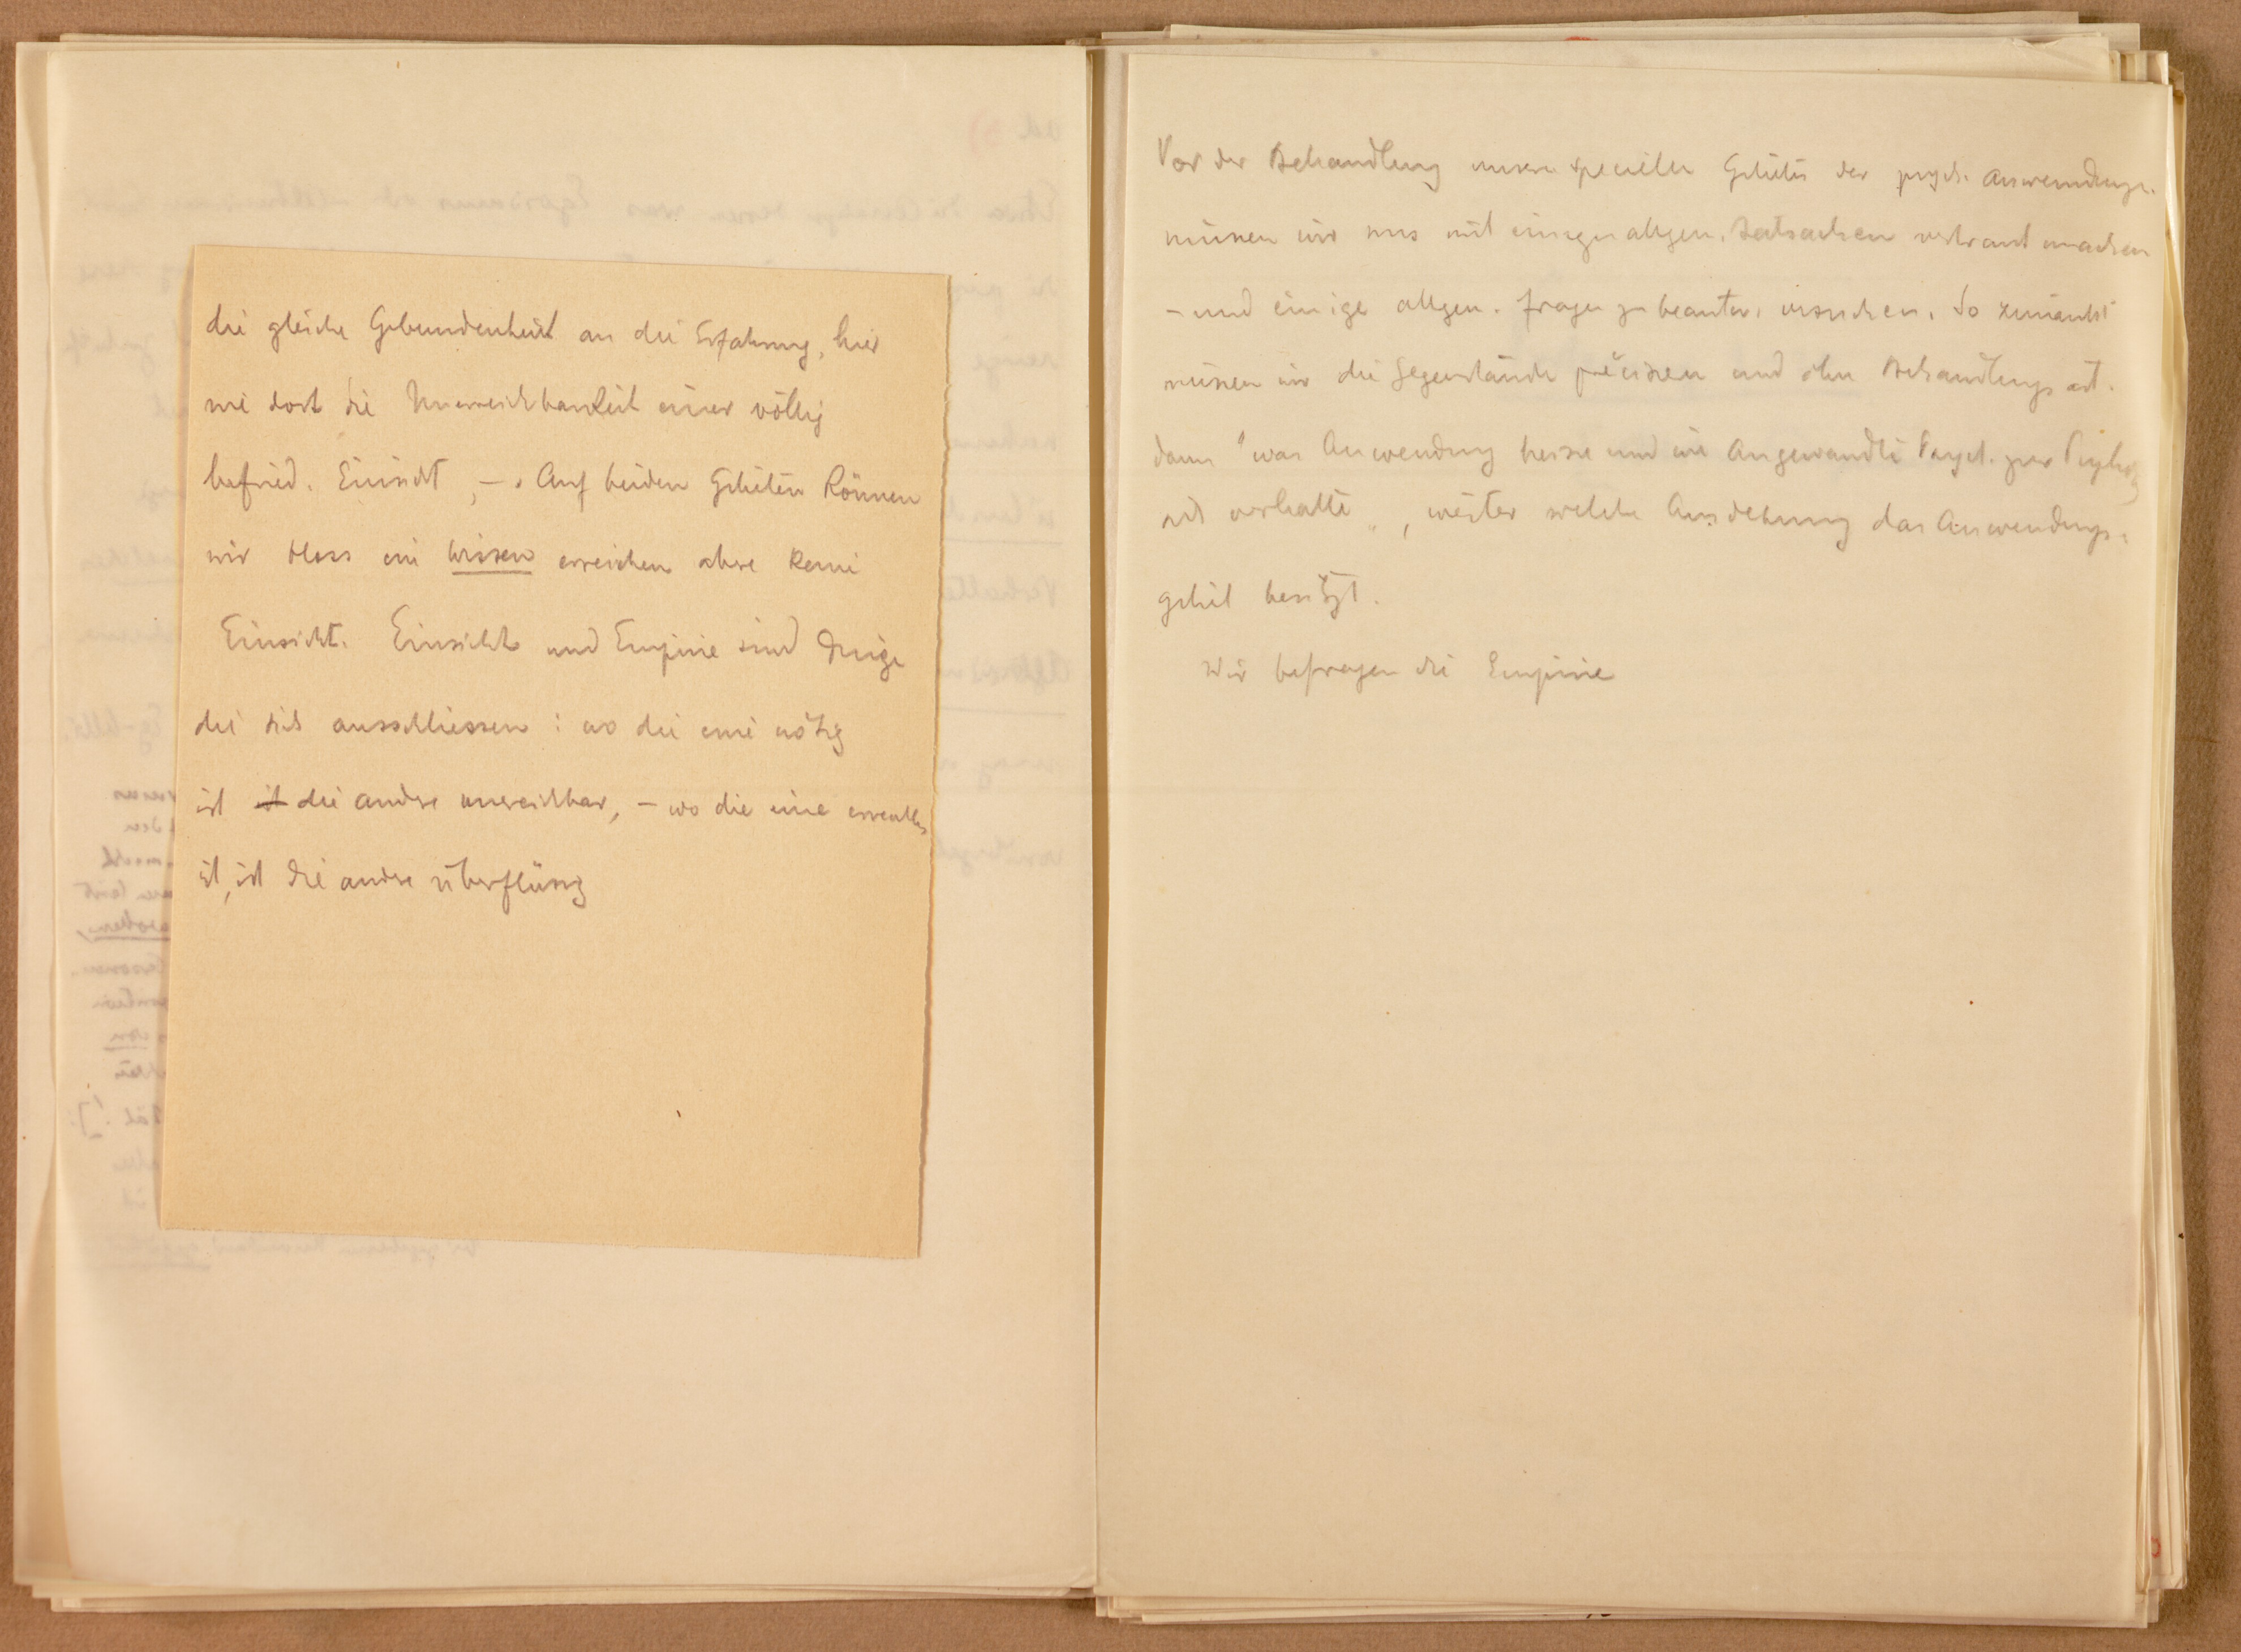 die gleiche Gebundenheit an die Erfahrung, hier
wie dort die Unerreichbarkeit einer völlig
befried. Einsicht, –. Auf beiden Gebieten können
wir bloss ein Wissen erreichen aber keine
Einsicht. Einsicht und Empirie sind Dinge
die sich ausschliessen: wo die eine nötig
ist ist die andre unerreichbar, – wo die eine erreichbar
ist, ist die andre überflüssig
Vor der Behandlung unsres speciellen Gebietes der psych. Anwendungen
müssen wir uns mit einigen allgem. Tatsachen vertraut machen
– und einige allgem. Fragen zu beantw. versuchen. So zunächst
müssen wir die Gegenstände präcisieren und ihre Behandlungsart.
dann "was Anwendung heisse und wie Angewandte Psych. zur Psychologie
sich verhalte", weiter welche Ausdehnung das Anwendungs-
gebiet besitzt.
Wir befragen die Empirie